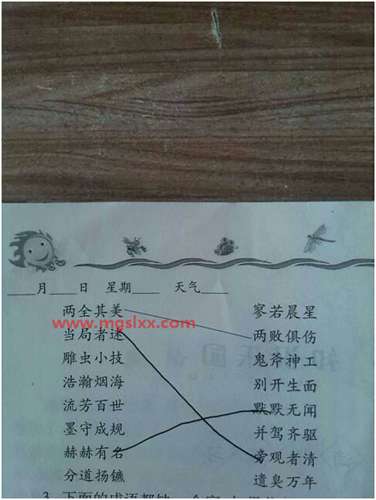 ___月___日 星期___ 天气___
两全其美 寥若晨星
www.mgslxx.com
当局者迷 两败俱伤
雕虫小技 鬼斧神工
浩瀚烟海 别开生面
流芳百世 默默无闻
墨守成规 并驾齐驱
赫赫有名 旁观者清
分道扬镳 遗臭万年
3. 下面的成语都